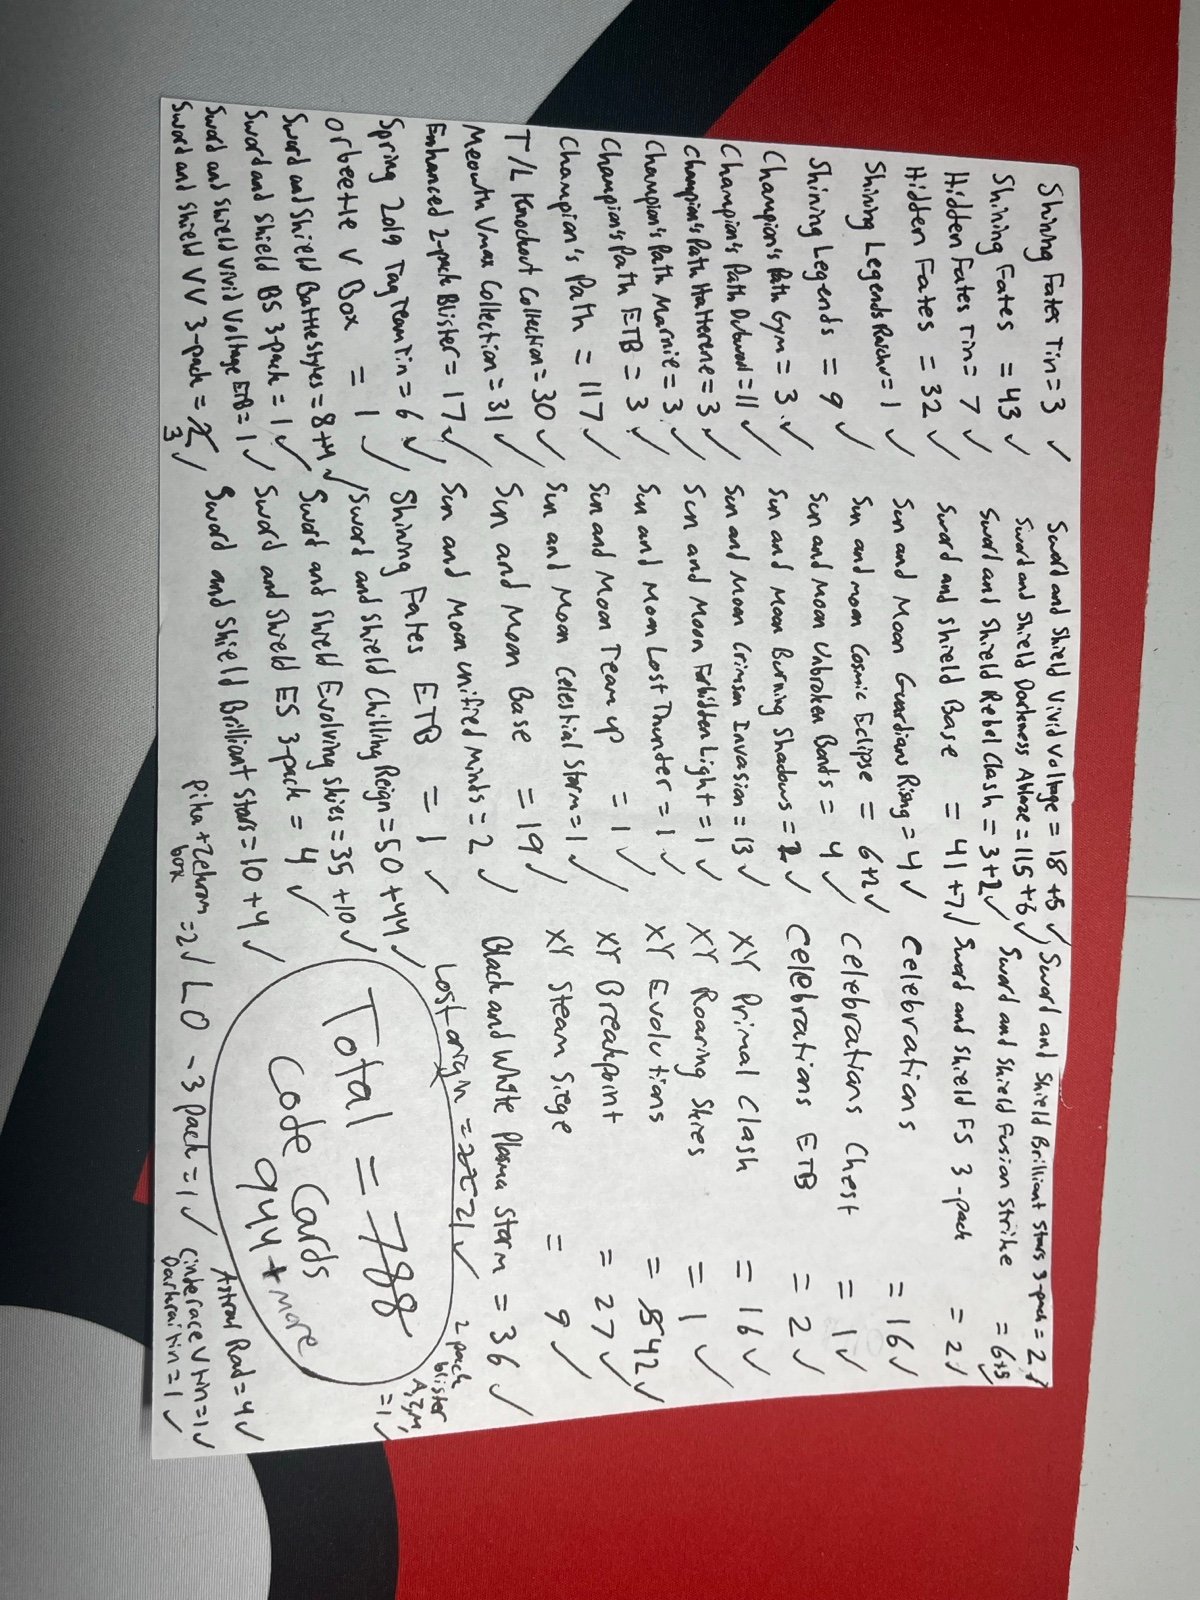 Shining Fates Tin = 3 ✓
Shining Fates = 43 ✓
Hidden Fates Tin = 7 ✓
Hidden Fates = 32 ✓
Shining Legends Raichu = 1 ✓
Shining Legends = 9 ✓
Champion's Path Gym = 3 ✓
Champion's Path Dubwool = 11 ✓
Champion's Path Hatterene = 3 ✓
Champion's Path Marnie = 3 ✓
Champion's Path ETB = 3 ✓
Champion's Path = 117 ✓
T/L Knockout Collection = 30 ✓
Meowth Vmax Collection = 31 ✓
Enhanced 2-pack Blister = 17 ✓
Spring 2019 Tag Team Tin = 6 ✓
Orbeetle V Box = 1 ✓
Sword and Shield Battle Styles = 8+4 ✓
Sword and Shield BS 3-pack = 1 ✓
Sword and Shield Vivid Voltage ETB = 1 ✓
Sword and Shield VV 3-pack = 3 ✓
Sword and Shield Vivid Voltage = 18 +5 ✓
Sword and Shield Darkness Ablaze = 115 +6 ✓
Sword and Shield Rebel Clash = 3+2 ✓
Sword and Shield Base = 41+7 ✓
Sun and Moon Guardians Rising = 4 ✓
Sun and Moon Cosmic Eclipse = 6+2 ✓
Sun and Moon Unbroken Bonds = 4 ✓
Sun and Moon Burning Shadows = 2 ✓
Sun and Moon Crimson Invasion = 13 ✓
Sun and Moon Forbidden Light = 1 ✓
Sun and Moon Lost Thunder = 1 ✓
Sun and Moon Team up = 1 ✓
Sun and Moon Celestial Storm = 1 ✓
Sun and Moon Base = 19 ✓
Sun and Moon Unified Minds = 2 ✓
Shining Fates ETB = 1 ✓
Sword and Shield Chilling Reign = 50 +44 ✓
Sword and Shield Evolving Skies = 35 +10 ✓
Sword and Shield ES 3-pack = 4 ✓
Sword and Shield Brilliant Stars = 10 +4 ✓
Pika + Zekrom box = 2 ✓
Sword and Shield Brilliant Stars 3-pack = 2 ✓
Sword and Shield Fusion Strike = 6+5 ✓
Sword and Shield FS 3-pack = 2 ✓
Celebrations = 16 ✓
Celebrations Chest = 1 ✓
Celebrations ETB = 2 ✓
XY Primal Clash = 16 ✓
XY Roaring Skies = 1 ✓
XY Evolutions = 42 ✓
XY Breakpoint = 27 ✓
XY Steam Siege = 9 ✓
Black and White Plasma Storm = 36 ✓
Lost origin = 21 ✓
2 pack blister = 1 ✓
Total = 788
Code Cards
944 + more
LO - 3 pack = 1 ✓
Astral Rad = 4 ✓
Cinderace V tin = 1 ✓
Darkrai tin = 1 ✓